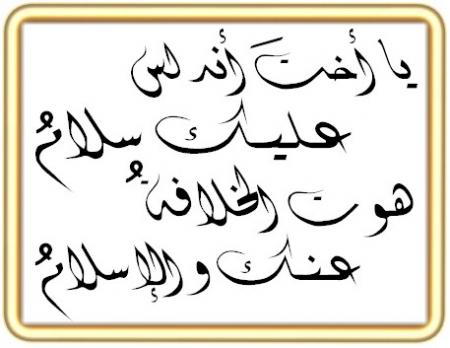 يا أختَ أندلس
عليك سلامُ
هوت الخلافةُ
عنك والإسلامُ